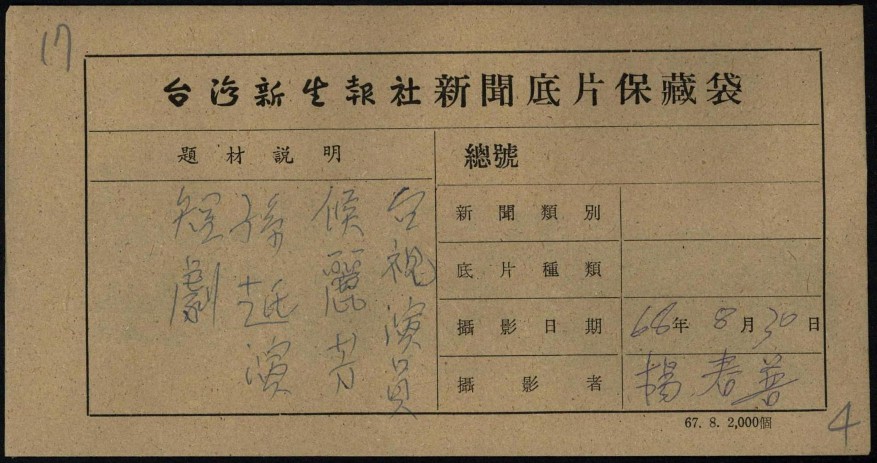 17
台灣新生報社新聞底片保藏袋
題材說明
台視演員
侯麗芳
孫越演
短劇
總號
新聞類別
底片種類
攝影日期 68年8月30日
攝影者 楊春善
67. 8. 2,000個
4